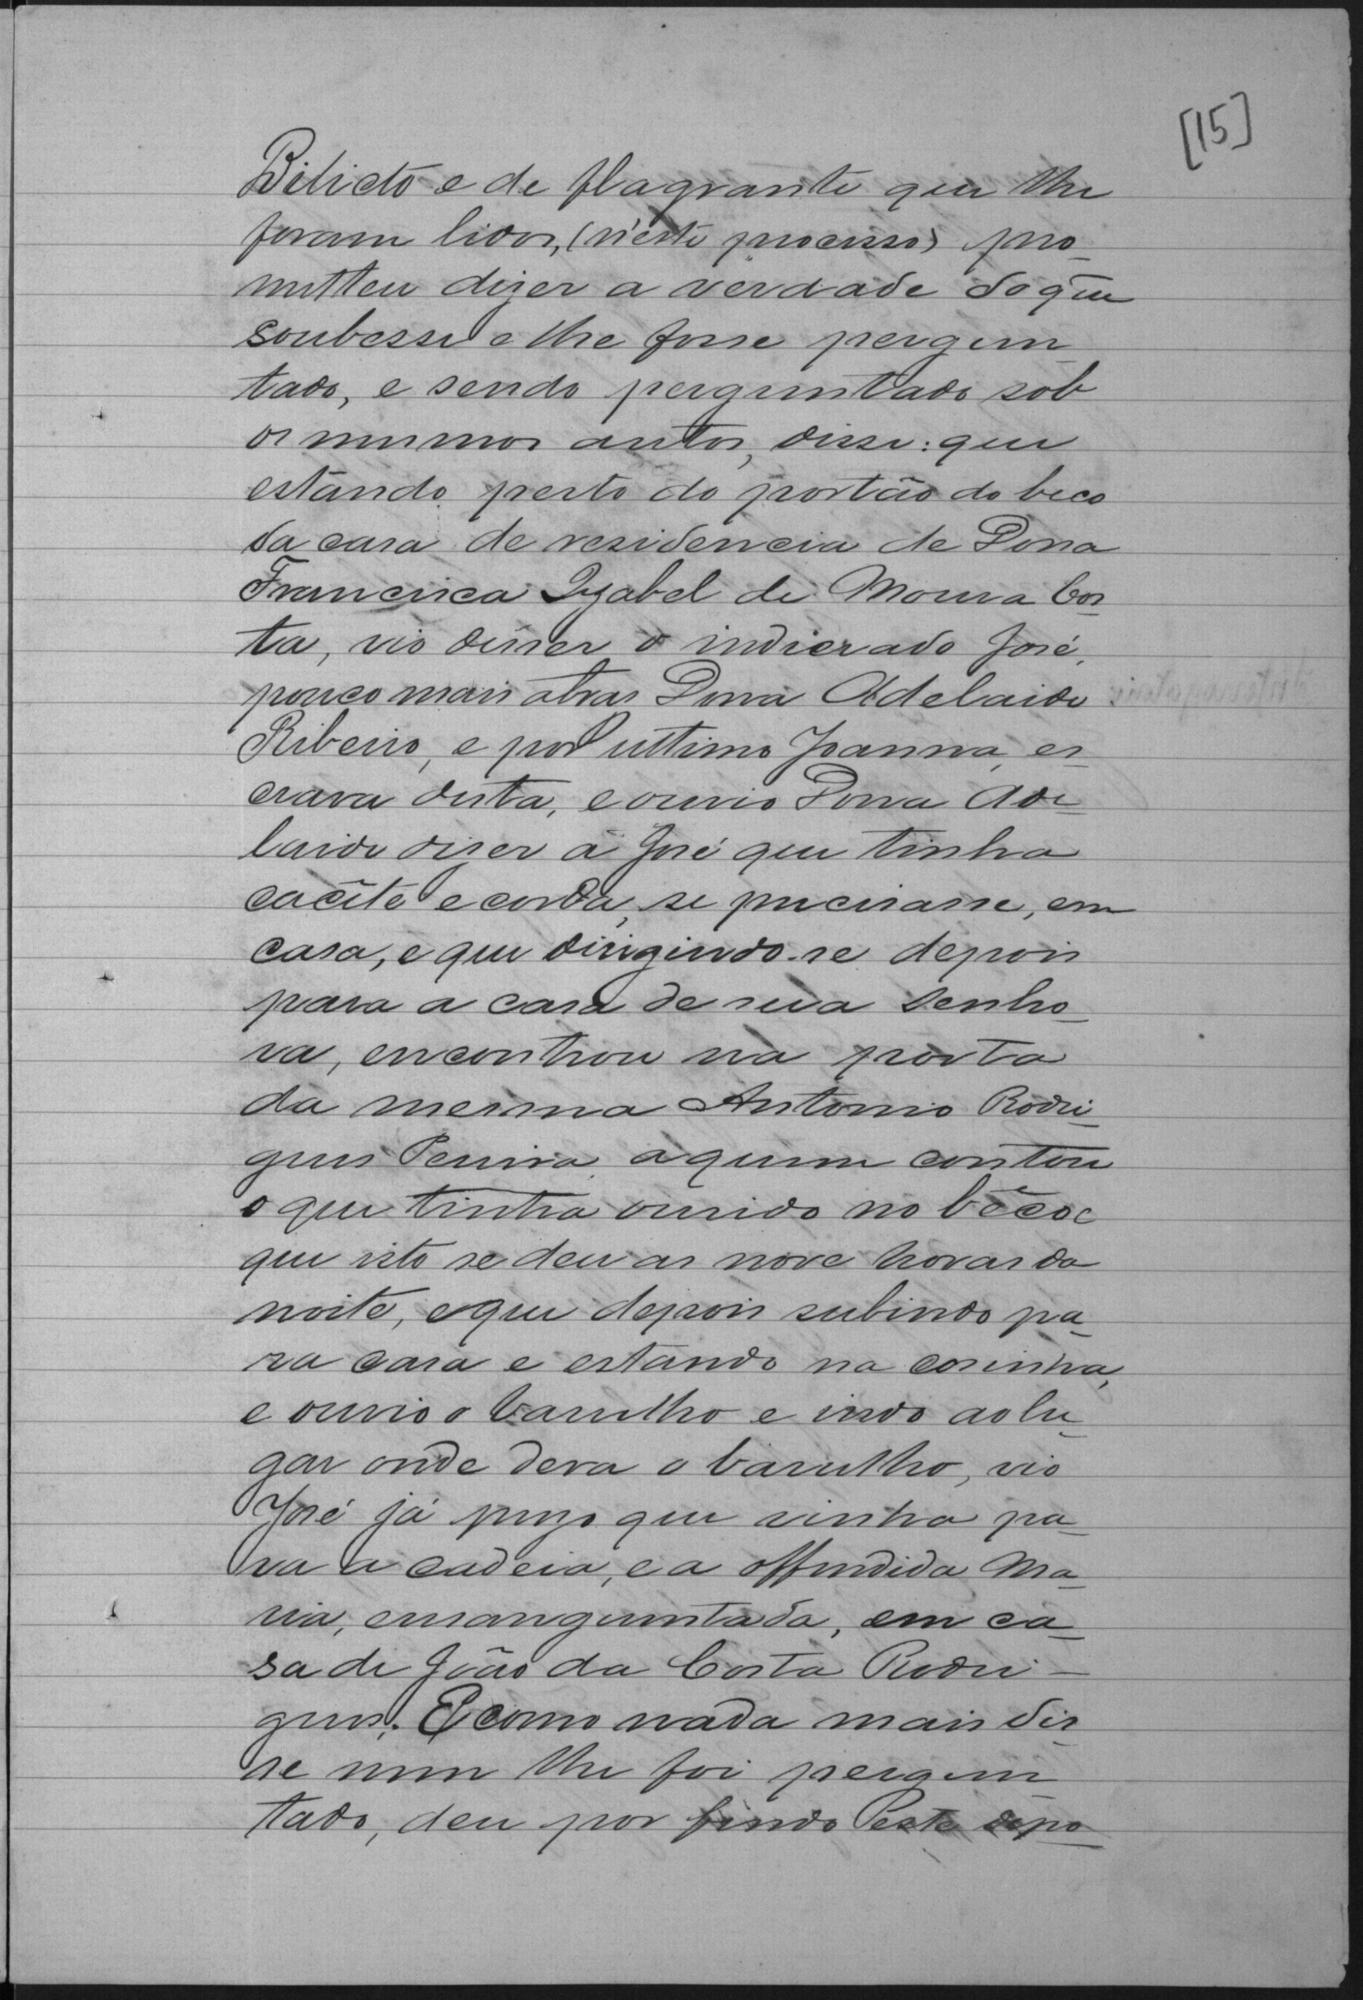 [15]
Delicto e de flagrante que lhe
foram lidos, (n'este processo) pro-
metteu dizer a verdade do que
soubesse e lhe fosse pergun-
tado, e sendo perguntado sob
os mesmos autos, disse: que
estando perto do portão do beco
da casa de residencia de Dona
Francisca Izabel de Moura Cos-
ta, vio descer o indiciado José,
pouco mais atras Dona Adelaide
Ribeiro, e por ultimo Joanna, es-
crava desta, e ouvio Dona Ade-
laide dizer á José que tinha
cacête e corda, se precisasse, em
casa, e que dirigindo-se depois
para a casa de sua senho-
ra, encontrou na porta
da mesma Antonio Rodri-
gues Pereira, a quem contou
o que tinha ouvido no bêco e
que isto se deu as nove horas da
noite, e que depois subindo pa-
ra casa e estando na cosinha,
e ouvio o barulho e indo ao lu-
gar onde dera o barulho, vio
José já prezo que vinha pa-
ra a cadeia, e a offendida Ma-
ria, ensanguentada, em ca-
sa de João da Costa Rodri-
gues. E como nada mais dis-
se nem lhe foi pergun-
tado, deu por findo este depo-